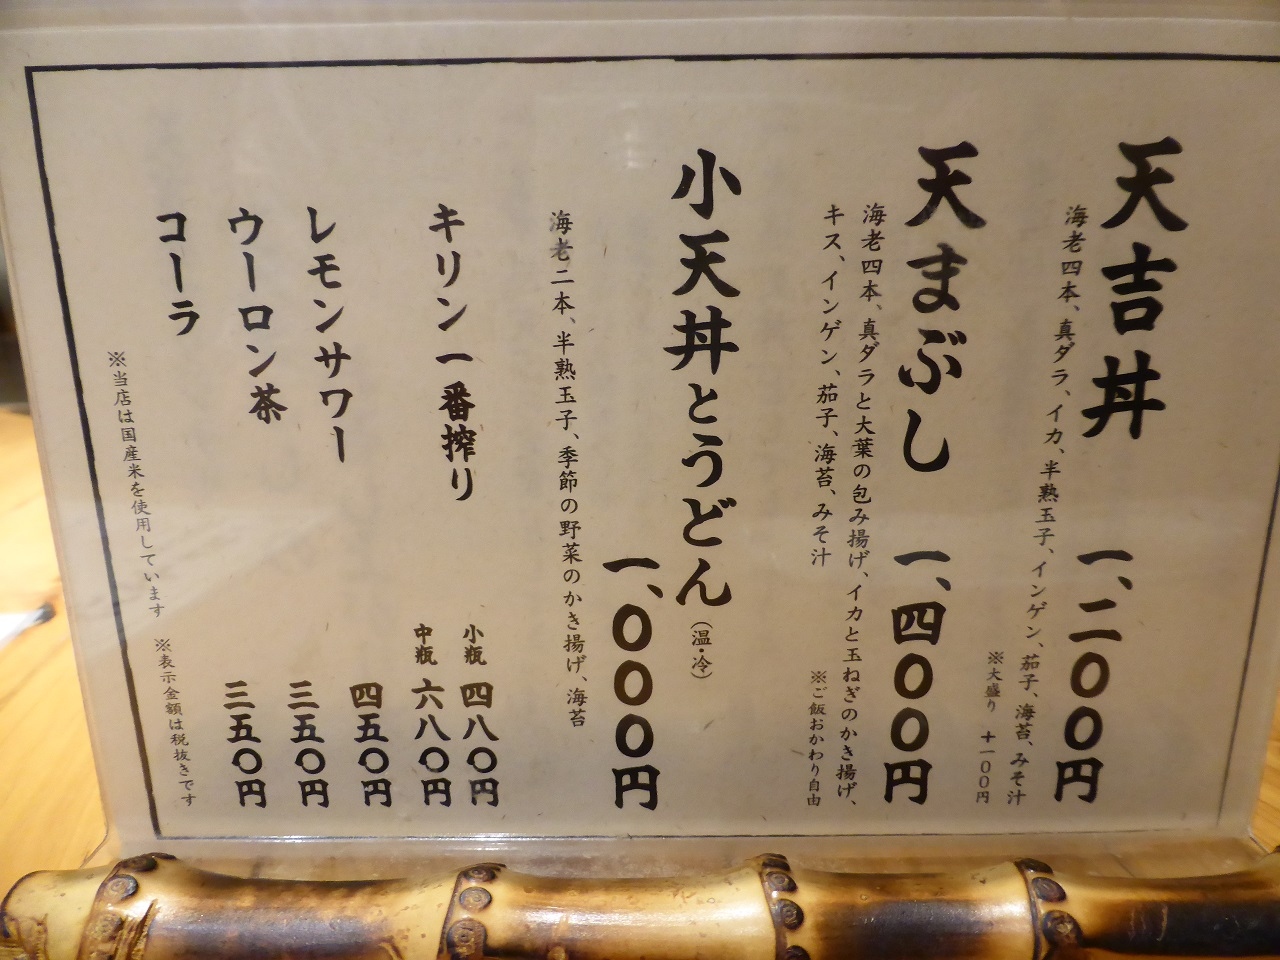 天吉丼 一、二〇〇円
海老四本、真ダラ、イカ、半熟玉子、インゲン、茄子、海苔、みそ汁
※大盛り 十一〇〇円
天まぶし 一、四〇〇円
海老四本、真ダラと大葉の包み揚げ、イカと玉ねぎのかき揚げ、
キス、インゲン、茄子、海苔、みそ汁
※ご飯おかわり自由
小天丼とうどん(温・冷)
一、〇〇〇円
海老二本、半熟玉子、季節の野菜のかき揚げ、海苔
キリン一番搾り
小瓶 四八〇円
中瓶 六八〇円
レモンサワー 四五〇円
ウーロン茶 三五〇円
コーラ 三五〇円
※当店は国産米を使用しています ※表示金額は税抜きです